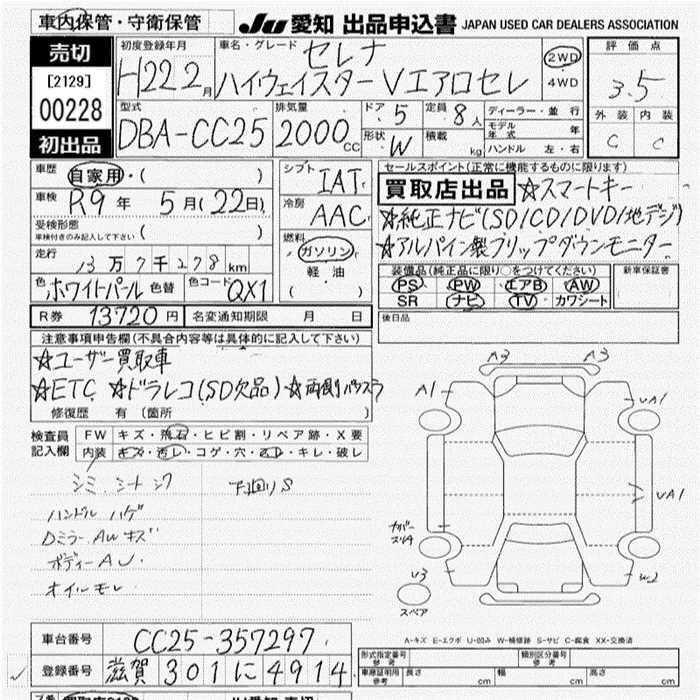 車内保管・守衛保管
JU 愛知 出品申込書 JAPAN USED CAR DEALERS ASSOCIATION
売切
[2129]
00228
初出品
初度登録年月
H22 2月
車名・グレード セレナ
ハイウェイスターVエアロセレ
2WD
4WD
評価点
3.5
外装 内装
C C
型式
DBA-CC25
排気量
2000cc
ドア 5
定員 8人
形状 W
積載 kg
ディーラー・並行
モデル年式 年
ハンドル 左・右
車歴 自家用・( )
車検 R9年 5月(22日)
受検形態
車検付きのみ記入して下さい ( )
走行
13万7千278km
色 ホワイトパール 色替 色コード QX1
シフト IAT
冷房 AAC
燃料
ガソリン
軽油
( )
セールスポイント(正常に機能するものに限ります)
買取店出品 ☆スマートキー
☆純正ナビ(SD/CD/DVD/地デジ)
☆アルパイン製フリップダウンモニター
装備品(純正品に限り○をつけてください)
PS PW エアB AW
SR ナビ TV カワシート
新車保証書
後日品
R券 13720円 名変通知期限 月 日
注意事項申告欄(不具合内容等は具体的に記入して下さい)
☆ユーザー買取車
☆ETC ☆ドラレコ(SD欠品) ☆両側パワスラ
修復歴 有 (箇所 )
検査員記入欄
FW キズ・飛石・ヒビ割・リペア跡・X要
内装 キズ・汚レ・コゲ・穴・スレ・キレ・破レ
シミ シート シワ 下回りS
ハンドル ハゲ
Dミラー AWキズ
ボディー AU
オイルモレ
A3 A3
A1 UA1
UA1
U3 W2
スペア
A-キズ E-エクボ U-凹み W-補修跡 S-サビ C-腐食 XX-交換済
車台番号 CC25-357297
登録番号 滋賀 301 に 4914
型式指定番号 参考
類別区分番号 参考
車庫証明用 参考 長さ cm 幅 cm 高さ cm